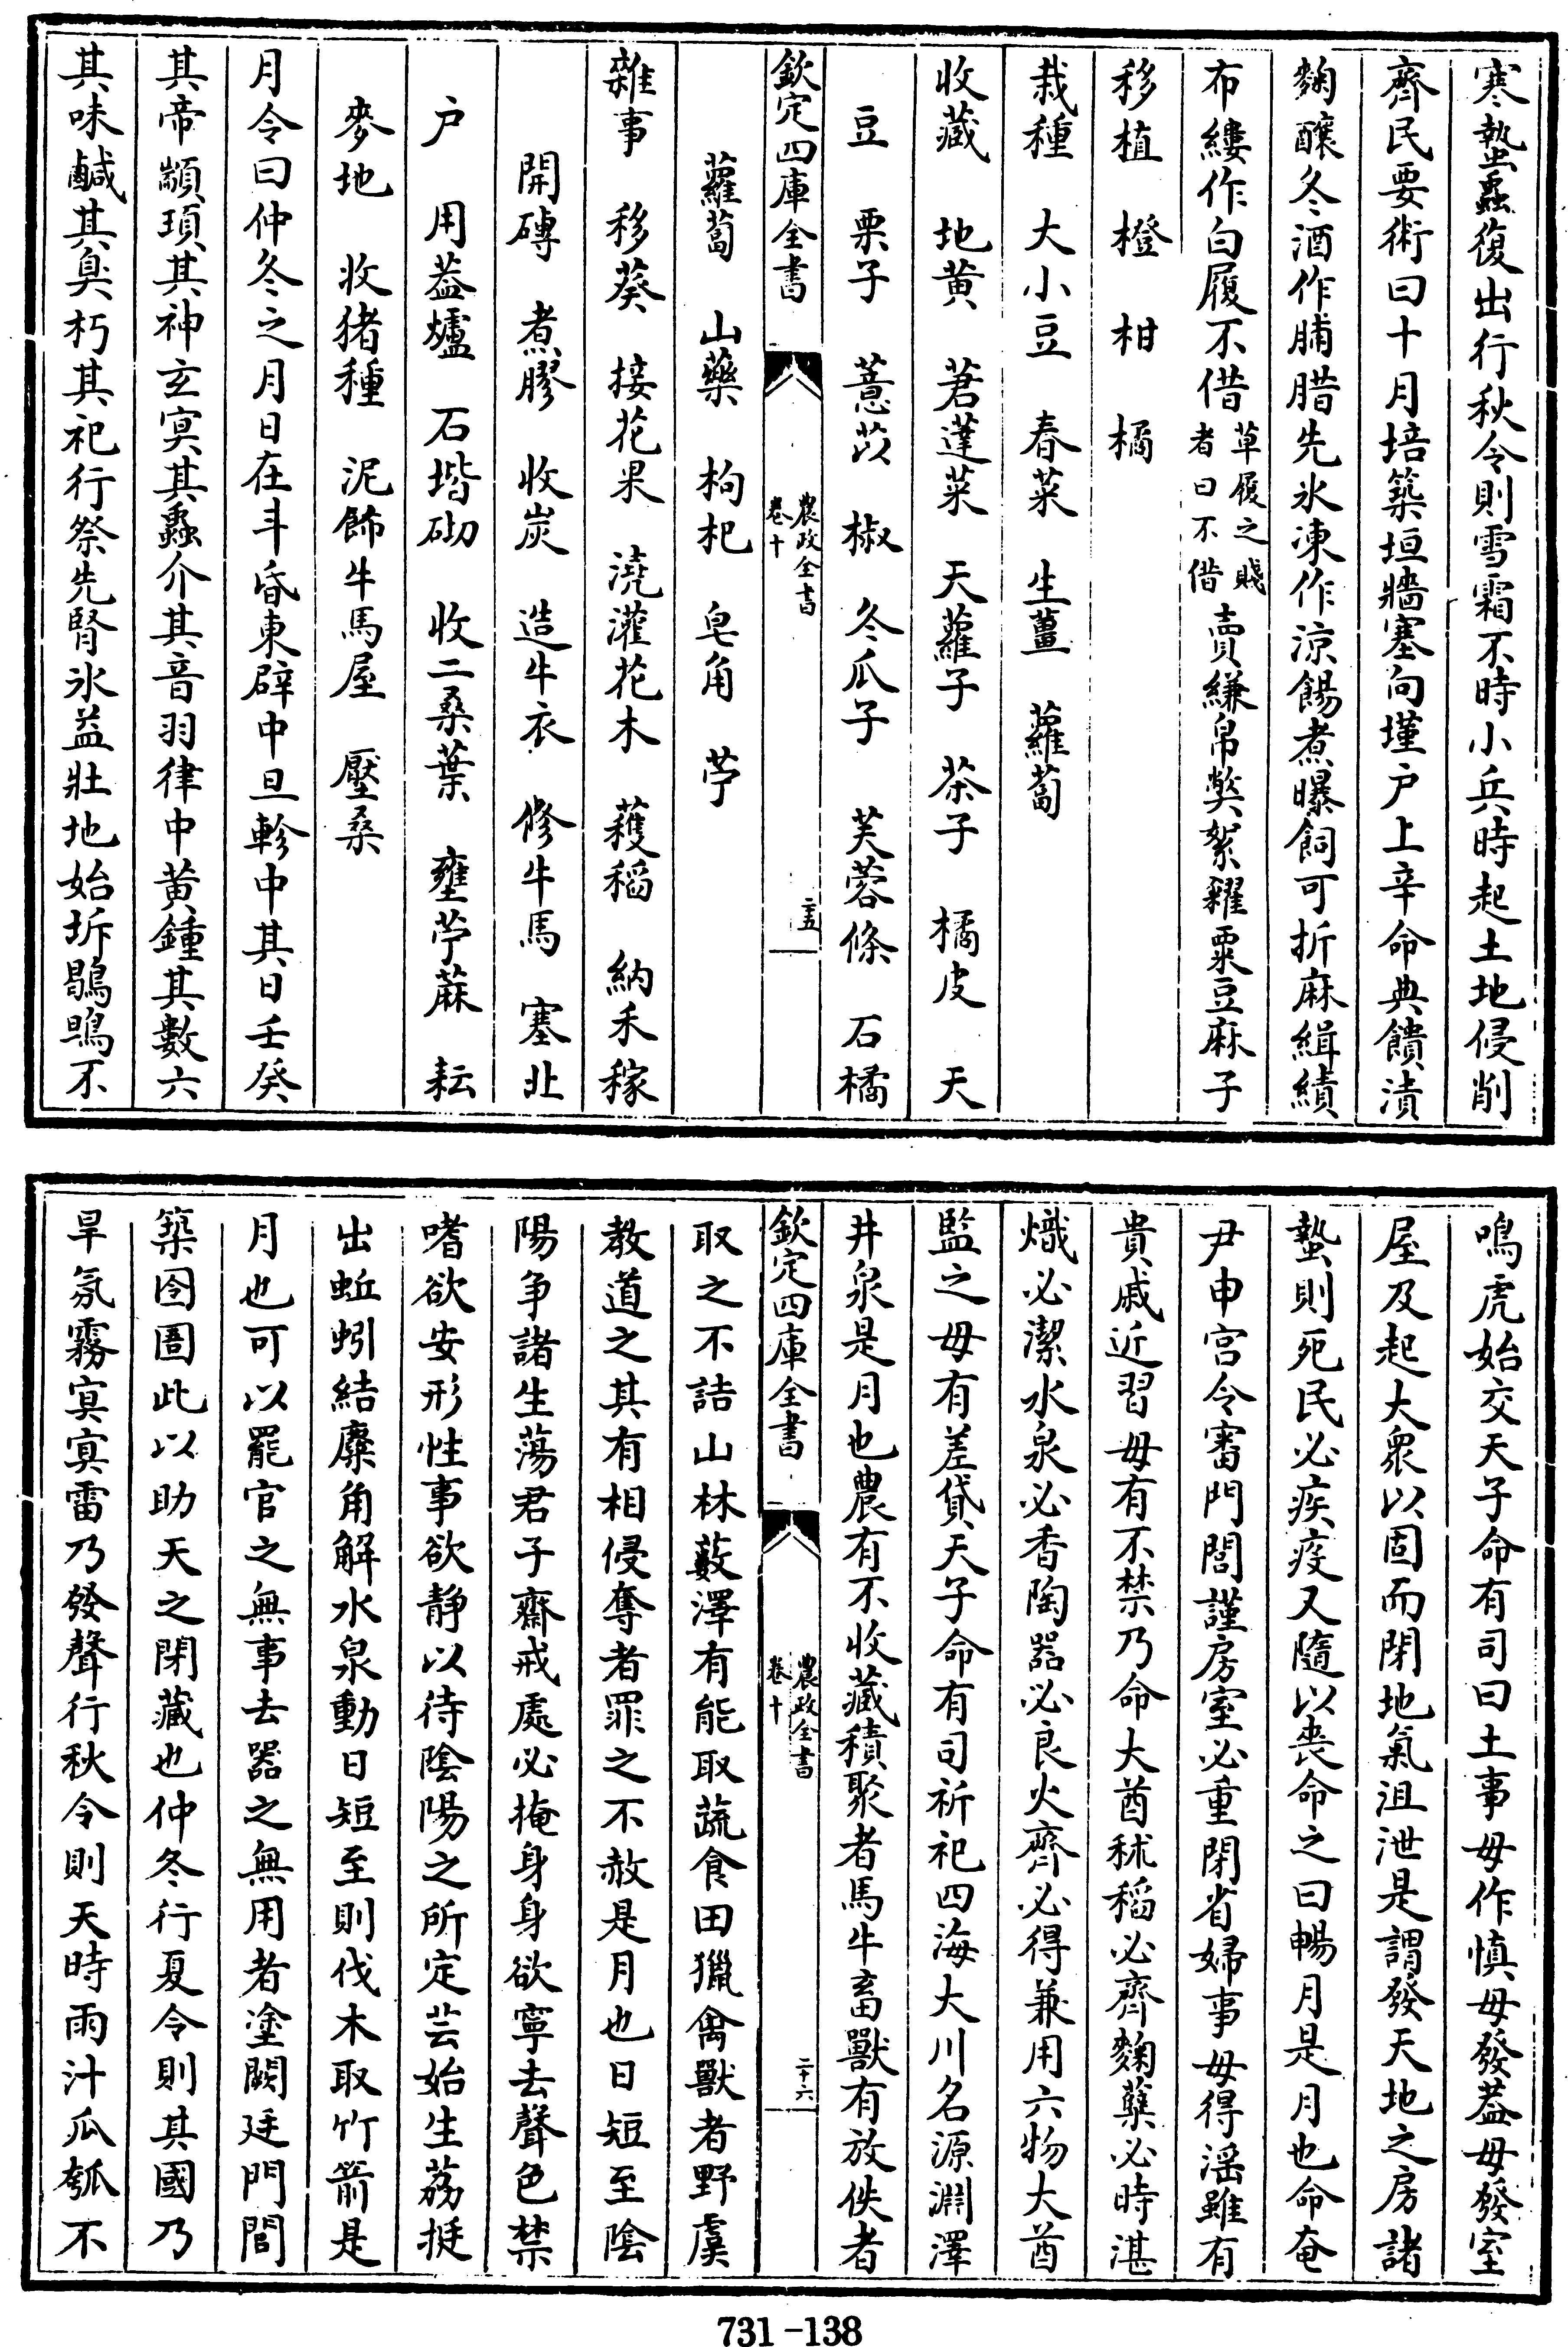 寒蟄蟲復出行秋令則雪霜不時小兵時起土地侵削
齊民要術曰十月培築垣牆塞向墐户上辛命典饋漬
麴釀冬酒作脯腊先氷凍作涼餳煮曝飼可折麻緝績
布縷作白履不借草履之賤者曰不借賣縑帛獘絮糴粟豆麻子
移植 橙 柑 橘
栽種 大小豆 春菜 生薑 蘿蔔
收藏 地黄 莙薘菜 天蘿子 茶子 橘皮 天
豆 栗子 薏苡 椒 冬瓜子 芙蓉條 石橘
欽定四庫全書 農政全書 卷十 二十五
蘿蔔 山藥 枸杞 皂角 苧
雜事 移葵 接花果 澆灌花木 穫稻 納禾稼
開磚 煮膠 收炭 造牛衣 修牛馬 塞北
户 用葢爐 石堦砌 收二桑葉 壅苧蔴 耘
麥地 收猪種 泥飾牛馬屋 壓桑
月令曰仲冬之月日在斗昏東辟中旦軫中其日壬癸
其帝顓頊其神玄㝠其蟲介其音羽律中黄鍾其數六
其味鹹其臭朽其祀行祭先腎氷益壯地始坼鶡鴠不
鳴虎始交天子命有司曰土事毋作慎毋發葢毋發室
屋及起大衆以固而閉地氣沮泄是謂發天地之房諸
蟄則死民必疾疫又隨以喪命之曰暢月是月也命奄
尹申宫令審門閭謹房室必重閉省婦事毋得淫雖有
貴戚近習毋有不禁乃命大酋秫稻必齊麴蘖必時湛
熾必潔水泉必香陶器必良火齊必得兼用六物大酋
監之毋有差貸天子命有司祈祀四海大川名源淵澤
井泉是月也農有不收藏積聚者馬牛畜獸有放佚者
欽定四庫全書 農政全書 卷十 二十六
取之不詰山林藪澤有能取蔬食田獵禽獸者野虞
教道之其有相侵奪者罪之不赦是月也日短至陰
陽争諸生蕩君子齋戒處必掩身身欲寧去聲色禁
嗜欲安形性事欲靜以待陰陽之所定芸始生荔挺
出蚯蚓結麋角解水泉動日短至則伐木取竹箭是
月也可以罷官之無事去器之無用者塗闕廷門閭
築囹圄此以助天之閉藏也仲冬行夏令則其國乃
旱氛霧㝠㝠雷乃發聲行秋令則天時雨汁瓜瓠不
731-138